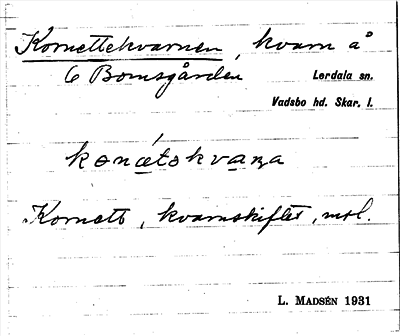 Kornettekvarnen, kvarn å
6 Bomsgården
Lerdala sn.
Vadsbo hd. Skar. l.
konætəkvaṇa
Kornett, kvarnskiftet, mtl.
L. MADSÉN 1931